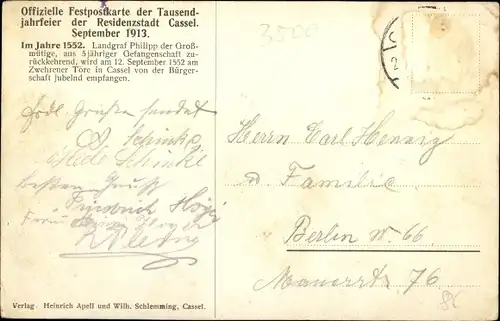 Offizielle Festpostkarte der Tausend-
jahrfeier der Residenzstadt Cassel.
September 1913.
Im Jahre 1552. Landgraf Philipp der Groß-
mütige, aus 5jähriger Gefangenschaft zu-
rückkehrend, wird am 12. September 1552 am
Zwehrener Tore in Cassel von der Bürger-
schaft jubelnd empfangen.
3500
Grüße sendet
Schinke
Schinke
besten Gruß
Friedrich
Herrn Carl Hennig
Familie
Berlin W. 66
Mauerstr 76
Verlag Heinrich Apell und Wilh. Schlemming, Cassel.